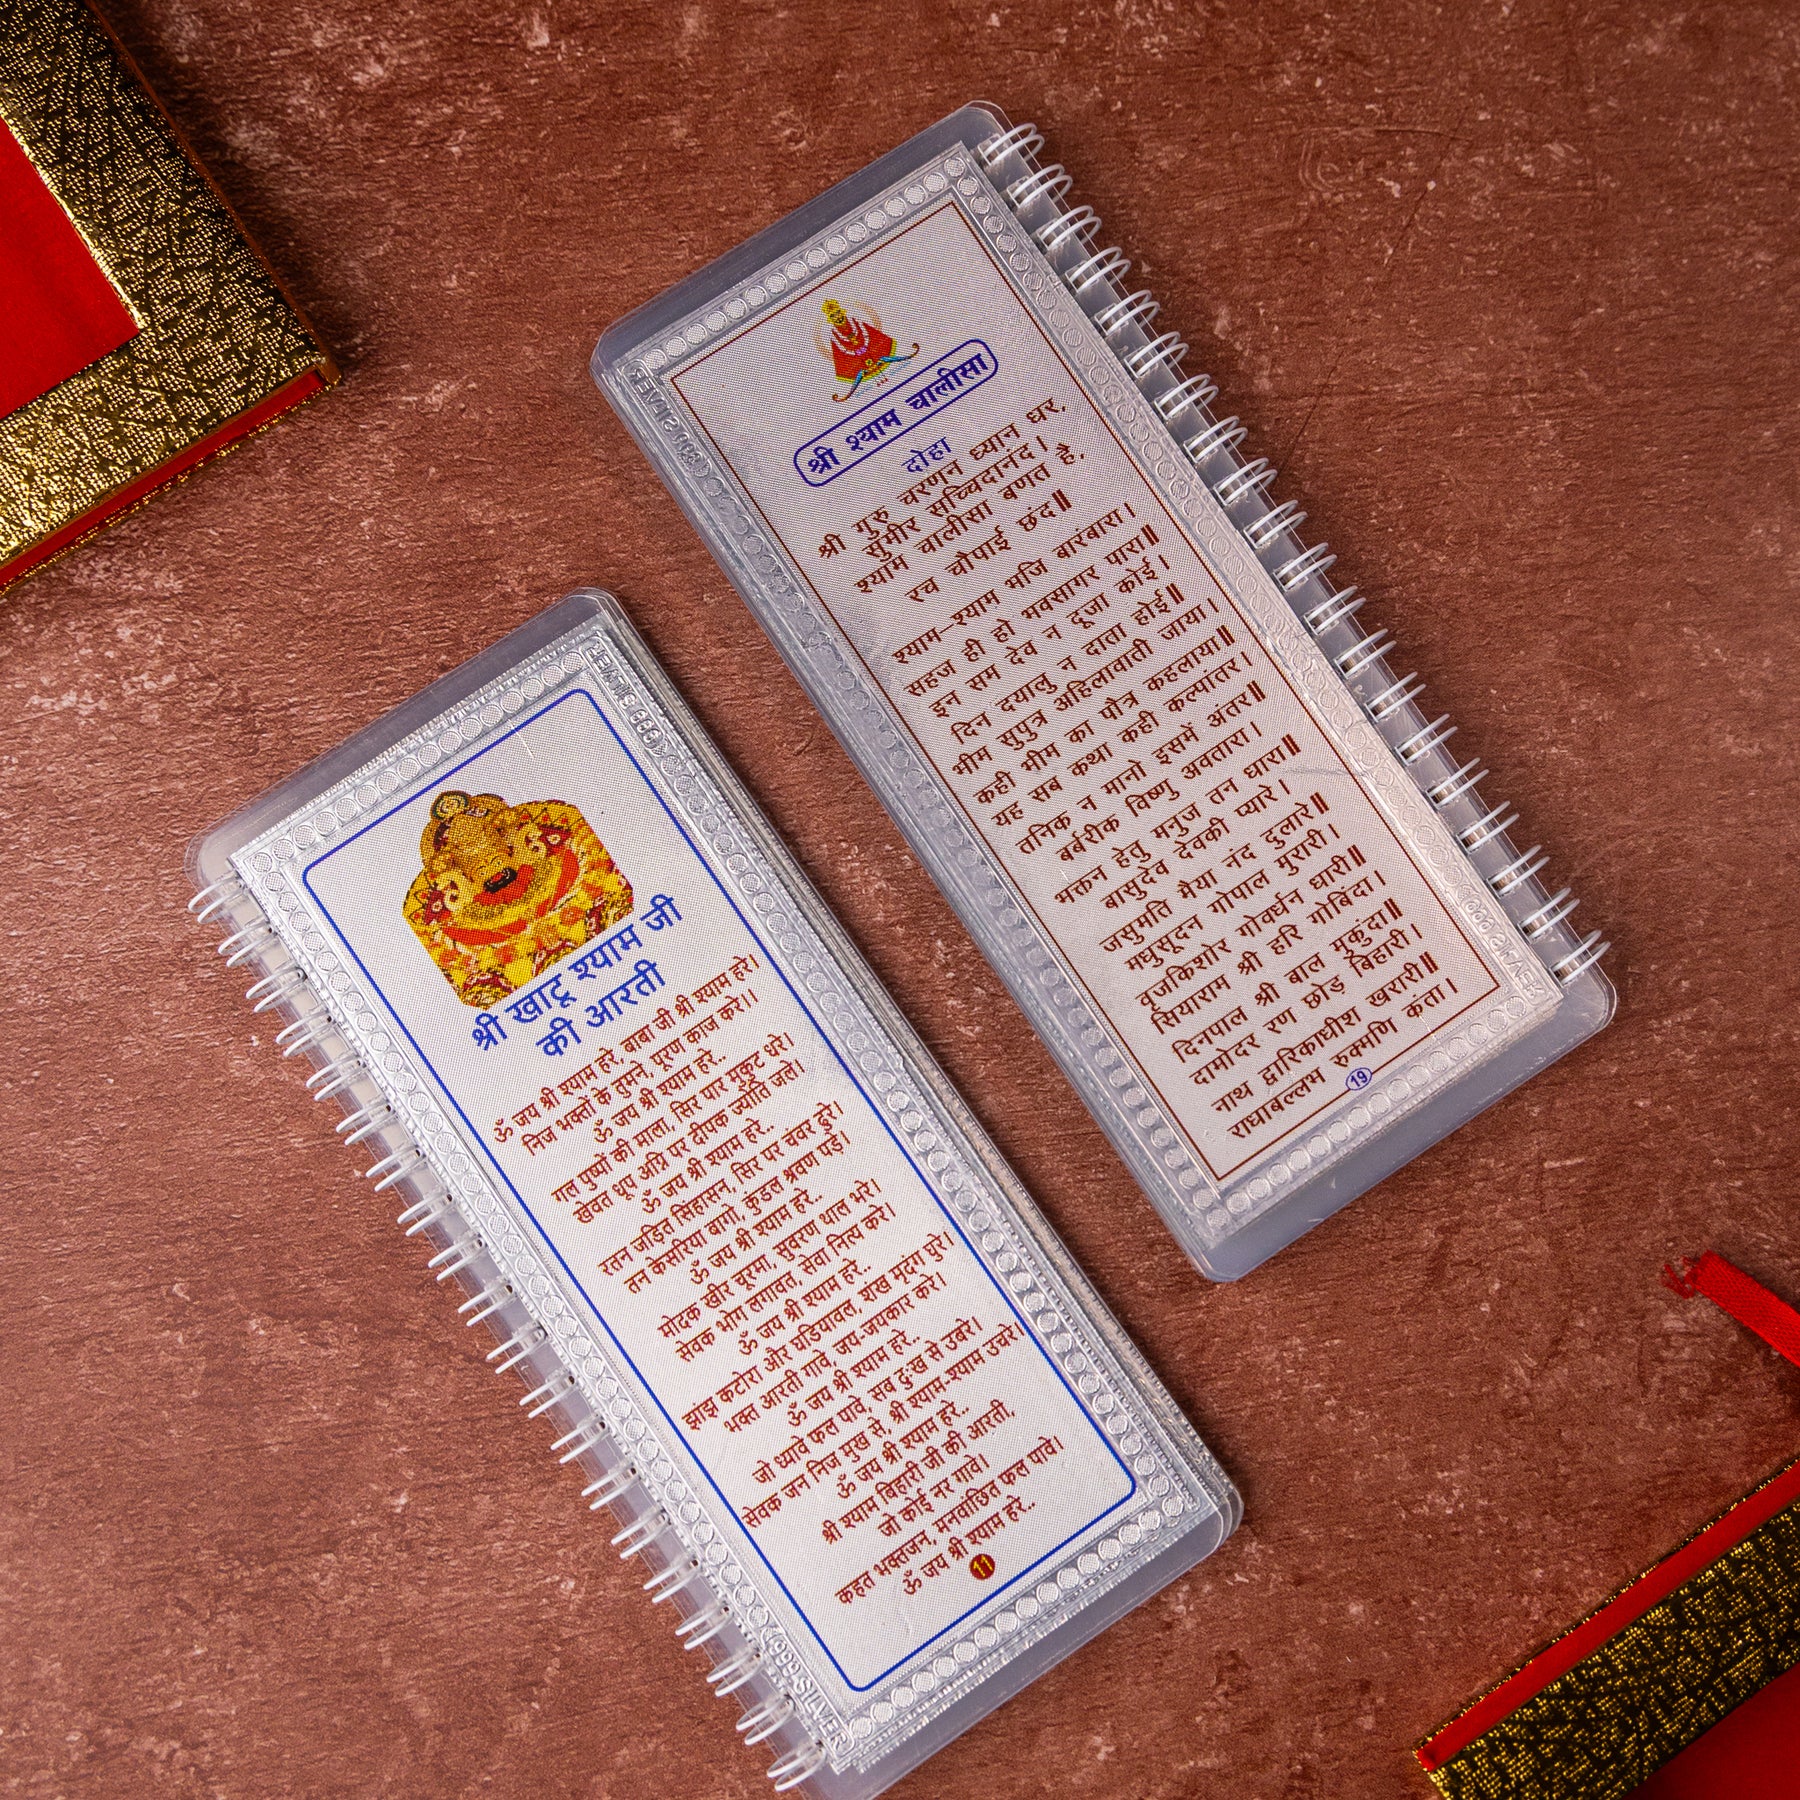 श्री खाटू श्याम जी
की आरती
ॐ जय श्री श्याम हरे, बाबा जी श्री श्याम हरे।
निज भक्तों के तुमने, पूरण काज करे।।
ॐ जय श्री श्याम हरे..
गल पुष्पों की माला, सिर पार मुकुट धरे।
खेवत धूप अग्नि पर दीपक ज्योति जले।
ॐ जय श्री श्याम हरे..
रतन जड़ित सिंहासन, सिर पर चंवर ढुरे।
तन केसरिया बागो, कुंडल श्रवण पड़े।
ॐ जय श्री श्याम हरे..
मोदक खीर चूरमा, सुवरण थाल भरे।
सेवक भोग लगावत, सेवा नित्य करे।
ॐ जय श्री श्याम हरे..
झांझ कटोरा और घडियावल, शंख मृदंग घुरे।
भक्त आरती गावे, जय-जयकार करे।
ॐ जय श्री श्याम हरे..
जो ध्यावे फल पावे, सब दुःख से उबरे।
सेवक जन निज मुख से, श्री श्याम-श्याम उचरे।
ॐ जय श्री श्याम हरे..
श्री श्याम बिहारी जी की आरती,
जो कोई नर गावे।
कहत भक्तजन, मनवांछित फल पावे।
ॐ जय श्री श्याम हरे..
11
श्री श्याम चालीसा
दोहा
श्री गुरु चरणन ध्यान धर,
सुमीर सच्चिदानंद।
श्याम चालीसा बणत है,
रच चोपाई छंद॥
श्याम-श्याम भजि बारंबारा।
सहज ही हो भवसागर पारा॥
इन सम देव न दूजा कोई।
दिन दयालु न दाता होई॥
भीम सुपुत्र अहिलावाती जाया।
कही भीम का पौत्र कहलाया॥
यह सब कथा कही कल्पांतर।
तनिक न मानो इसमें अंतर॥
बर्बरीक विष्णु अवतारा।
भक्तन हेतु मनुज तन धारा॥
बासुदेव देवकी प्यारे।
जसुमति मैया नंद दुलारे॥
मधुसूदन गोपाल मुरारी।
वृजकिशोर गोवर्धन धारी॥
सियाराम श्री हरि गोबिंदा।
दिनपाल श्री बाल मुकुंदा॥
दामोदर रण छोड़ बिहारी।
नाथ द्वारिकाधीश खरारी॥
राधाबल्लभ रुक्मणि कंता।
19